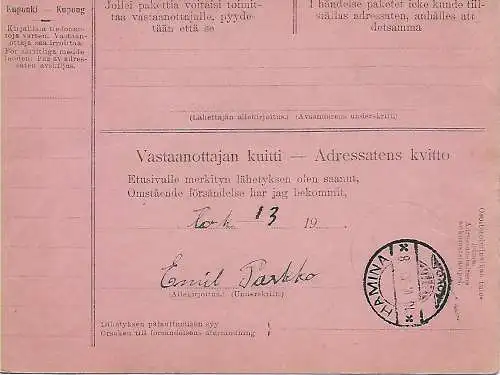 Kuponki — Kupong
Kirjallisia tiedonan-
toja varten. Vastaan-
ottaja saa irroittaa.
För skriftliga medde-
landen. Får av adres-
saten avskiljas.
Jollei pakettia voitaisi toimit-
taa vastaanottajalle, pyyde-
tään että se
I händelse paketet icke kunde till-
ställas adressaten, anhålles att
detsamma
(Lähettäjän allekirjoitus.) (Avsändarens underskrift)
Vastaanottajan kuitti — Adressatens kvitto
Etusivulle merkityn lähetyksen olen saanut,
Omstående försändelse har jag bekommit,
13 19
Emil Parkko
(Allekirjoitus.) (Underskrift)
HAMINA
Lähetyksen palauttamisen syy
Orsaken till försändelsens återsändning